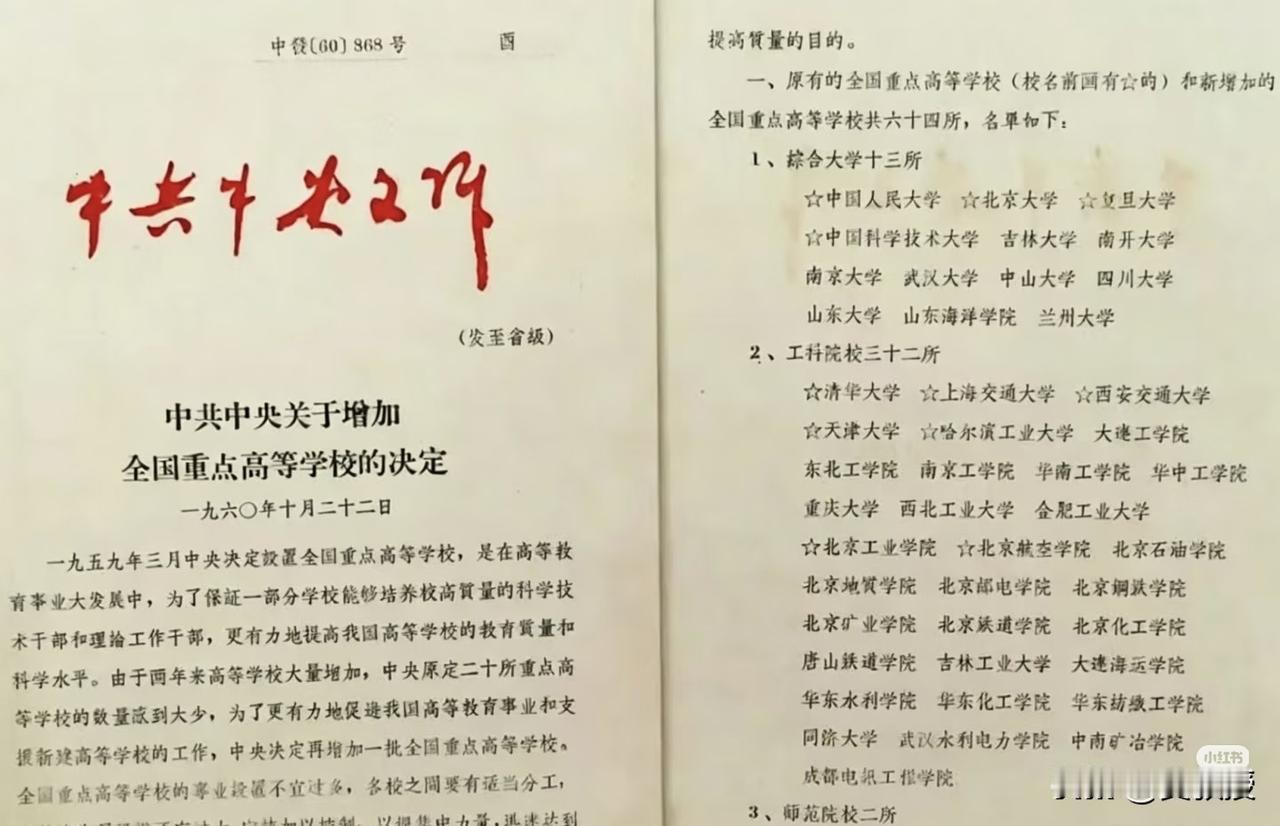 中發〔60〕868号 酉
中共中央文件
(发至省級)
中共中央关于增加
全国重点高等学校的决定
一九六〇年十月二十二日
一九五九年三月中央决定設置全国重点高等学校，是在高等教
育事业大发展中，为了保証一部分学校能够培养校高質量的科学技
术干部和理論工作干部，更有力地提高我国高等学校的教育質量和
科学水平。由于两年来高等学校大量增加，中央原定二十所重点高
等学校的数量感到大少，为了更有力地促进我国高等教育事业和支
援新建高等学校的工作，中央决定再增加一批全国重点高等学校。
全国重点高等学校的专业設置不宜过多，各校之間要有适当分工，
以提集中力量，迅速达到
提高質量的目的。
一、原有的全国重点高等学校（校名前画有☆的）和新增加的
全国重点高等学校共六十四所，名单如下：
1、綜合大学十三所
☆中国人民大学 ☆北京大学 ☆复旦大学
☆中国科学技术大学 吉林大学 南开大学
南京大学 武汉大学 中山大学 四川大学
山东大学 山东海洋学院 兰州大学
2、工科院校三十二所
☆清华大学 ☆上海交通大学 ☆西安交通大学
☆天津大学 ☆哈尔滨工业大学 大連工学院
东北工学院 南京工学院 华南工学院 华中工学院
重庆大学 西北工业大学 合肥工业大学
☆北京工业学院 ☆北京航空学院 北京石油学院
北京地質学院 北京邮电学院 北京鋼鉄学院
北京矿业学院 北京鉄道学院 北京化工学院
唐山鉄道学院 吉林工业大学 大連海运学院
华东水利学院 华东化工学院 华东紡織工学院
同济大学 武汉水利电力学院 中南矿冶学院
成都电訊工程学院
3、师范院校二所
小红书